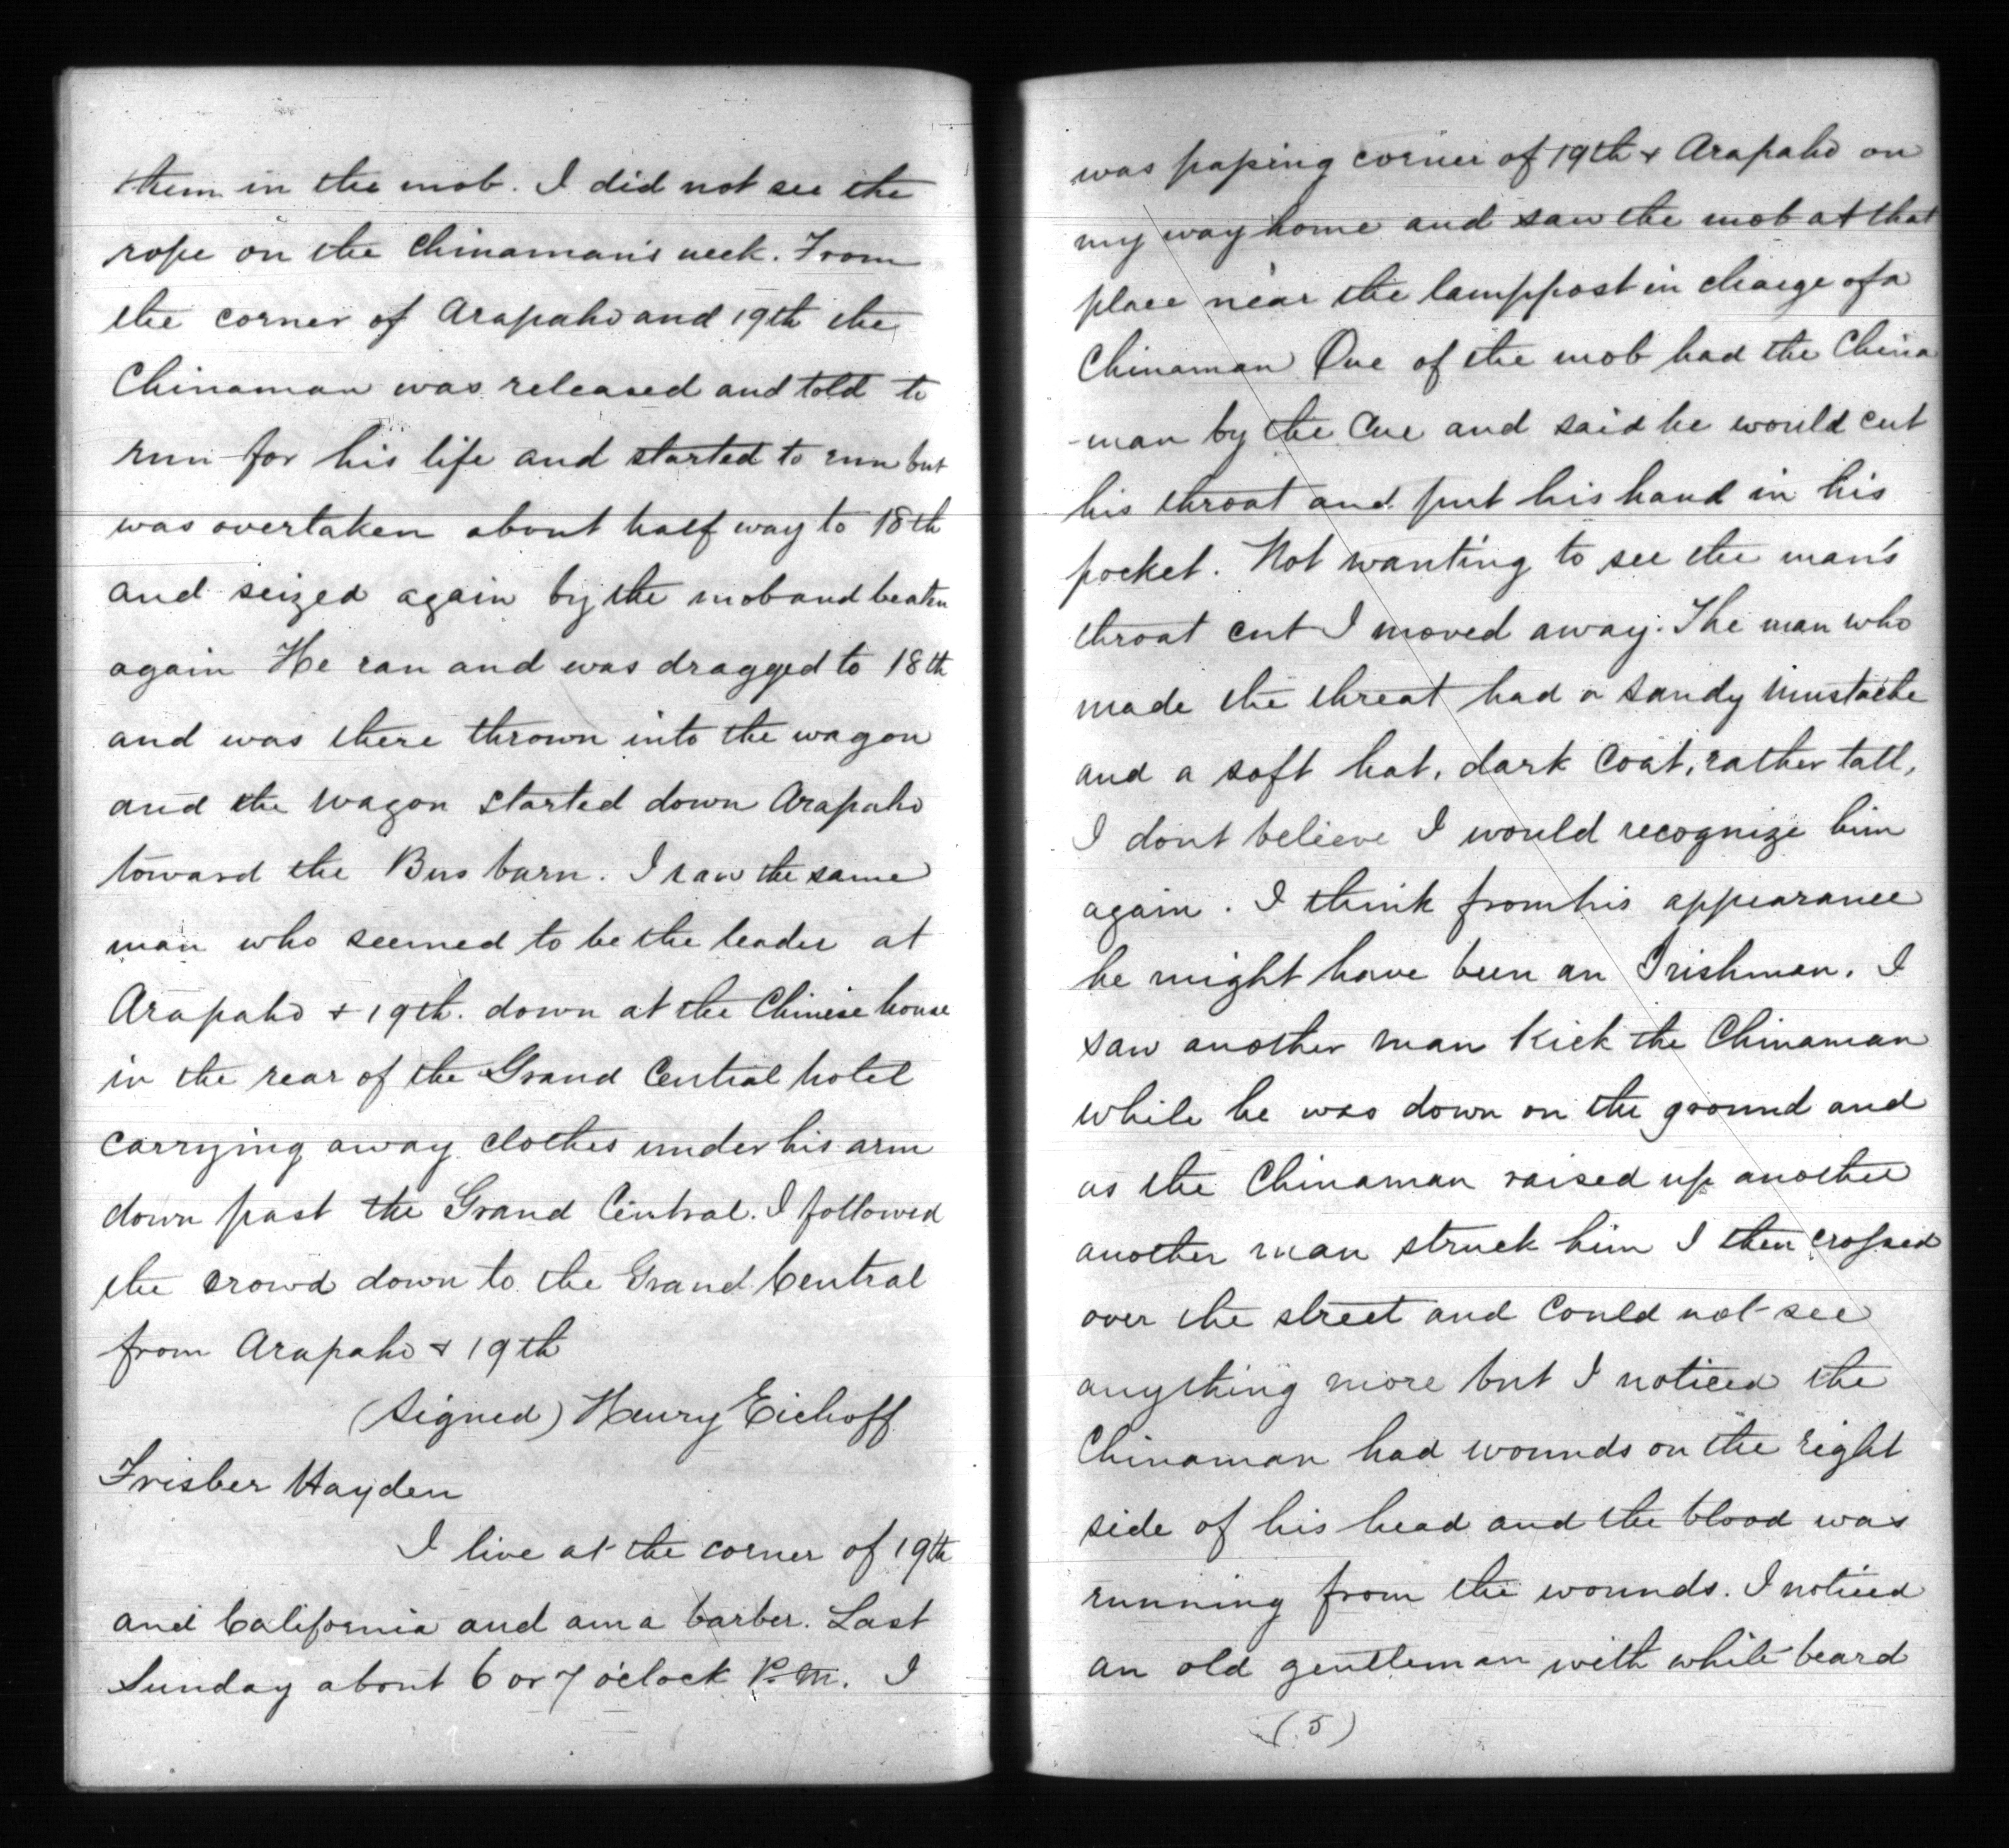 them in the mob. I did not see the
rope on the Chinaman's neck. From
the corner of Arapaho and 19th the
Chinaman was released and told to
run for his life and started to run but
was overtaken about half way to 18th
and seized again by the mob and beaten
again He ran and was dragged to 18th
and was there thrown into the wagon
and the wagon started down Arapaho
toward the Bus barn. I saw the same
man who seemed to be the leader at
Arapaho & 19th. down at the Chinese house
in the rear of the Grand Central hotel
carrying away clothes under his arm
down past the Grand Central. I followed
the crowd down to the Grand Central
from Arapaho & 19th
(Signed) Henry Eichoff
Frisber Hayden
I live at the corner of 19th
and California and am a barber. Last
Sunday about 6 or 7 o'clock P.M. I
was passing corner of 19th & Arapaho on
my way home and saw the mob at that
place near the lamppost in charge of a
Chinaman One of the mob had the China
-man by the Cue and said he would cut
his throat and put his hand in his
pocket. Not wanting to see the man's
throat cut I moved away. The man who
made the threat had a sandy mustache
and a soft hat, dark coat, rather tall,
I dont believe I would recognize him
again. I think from his appearance
he might have been an Irishman. I
saw another man kick the Chinaman
while he was down on the ground and
as the Chinaman raised up another
another man struck him I then crossed
over the street and could not see
anything more but I noticed the
Chinaman had wounds on the right
side of his head and the blood was
running from the wounds. I noticed
an old gentleman with white beard
(5)